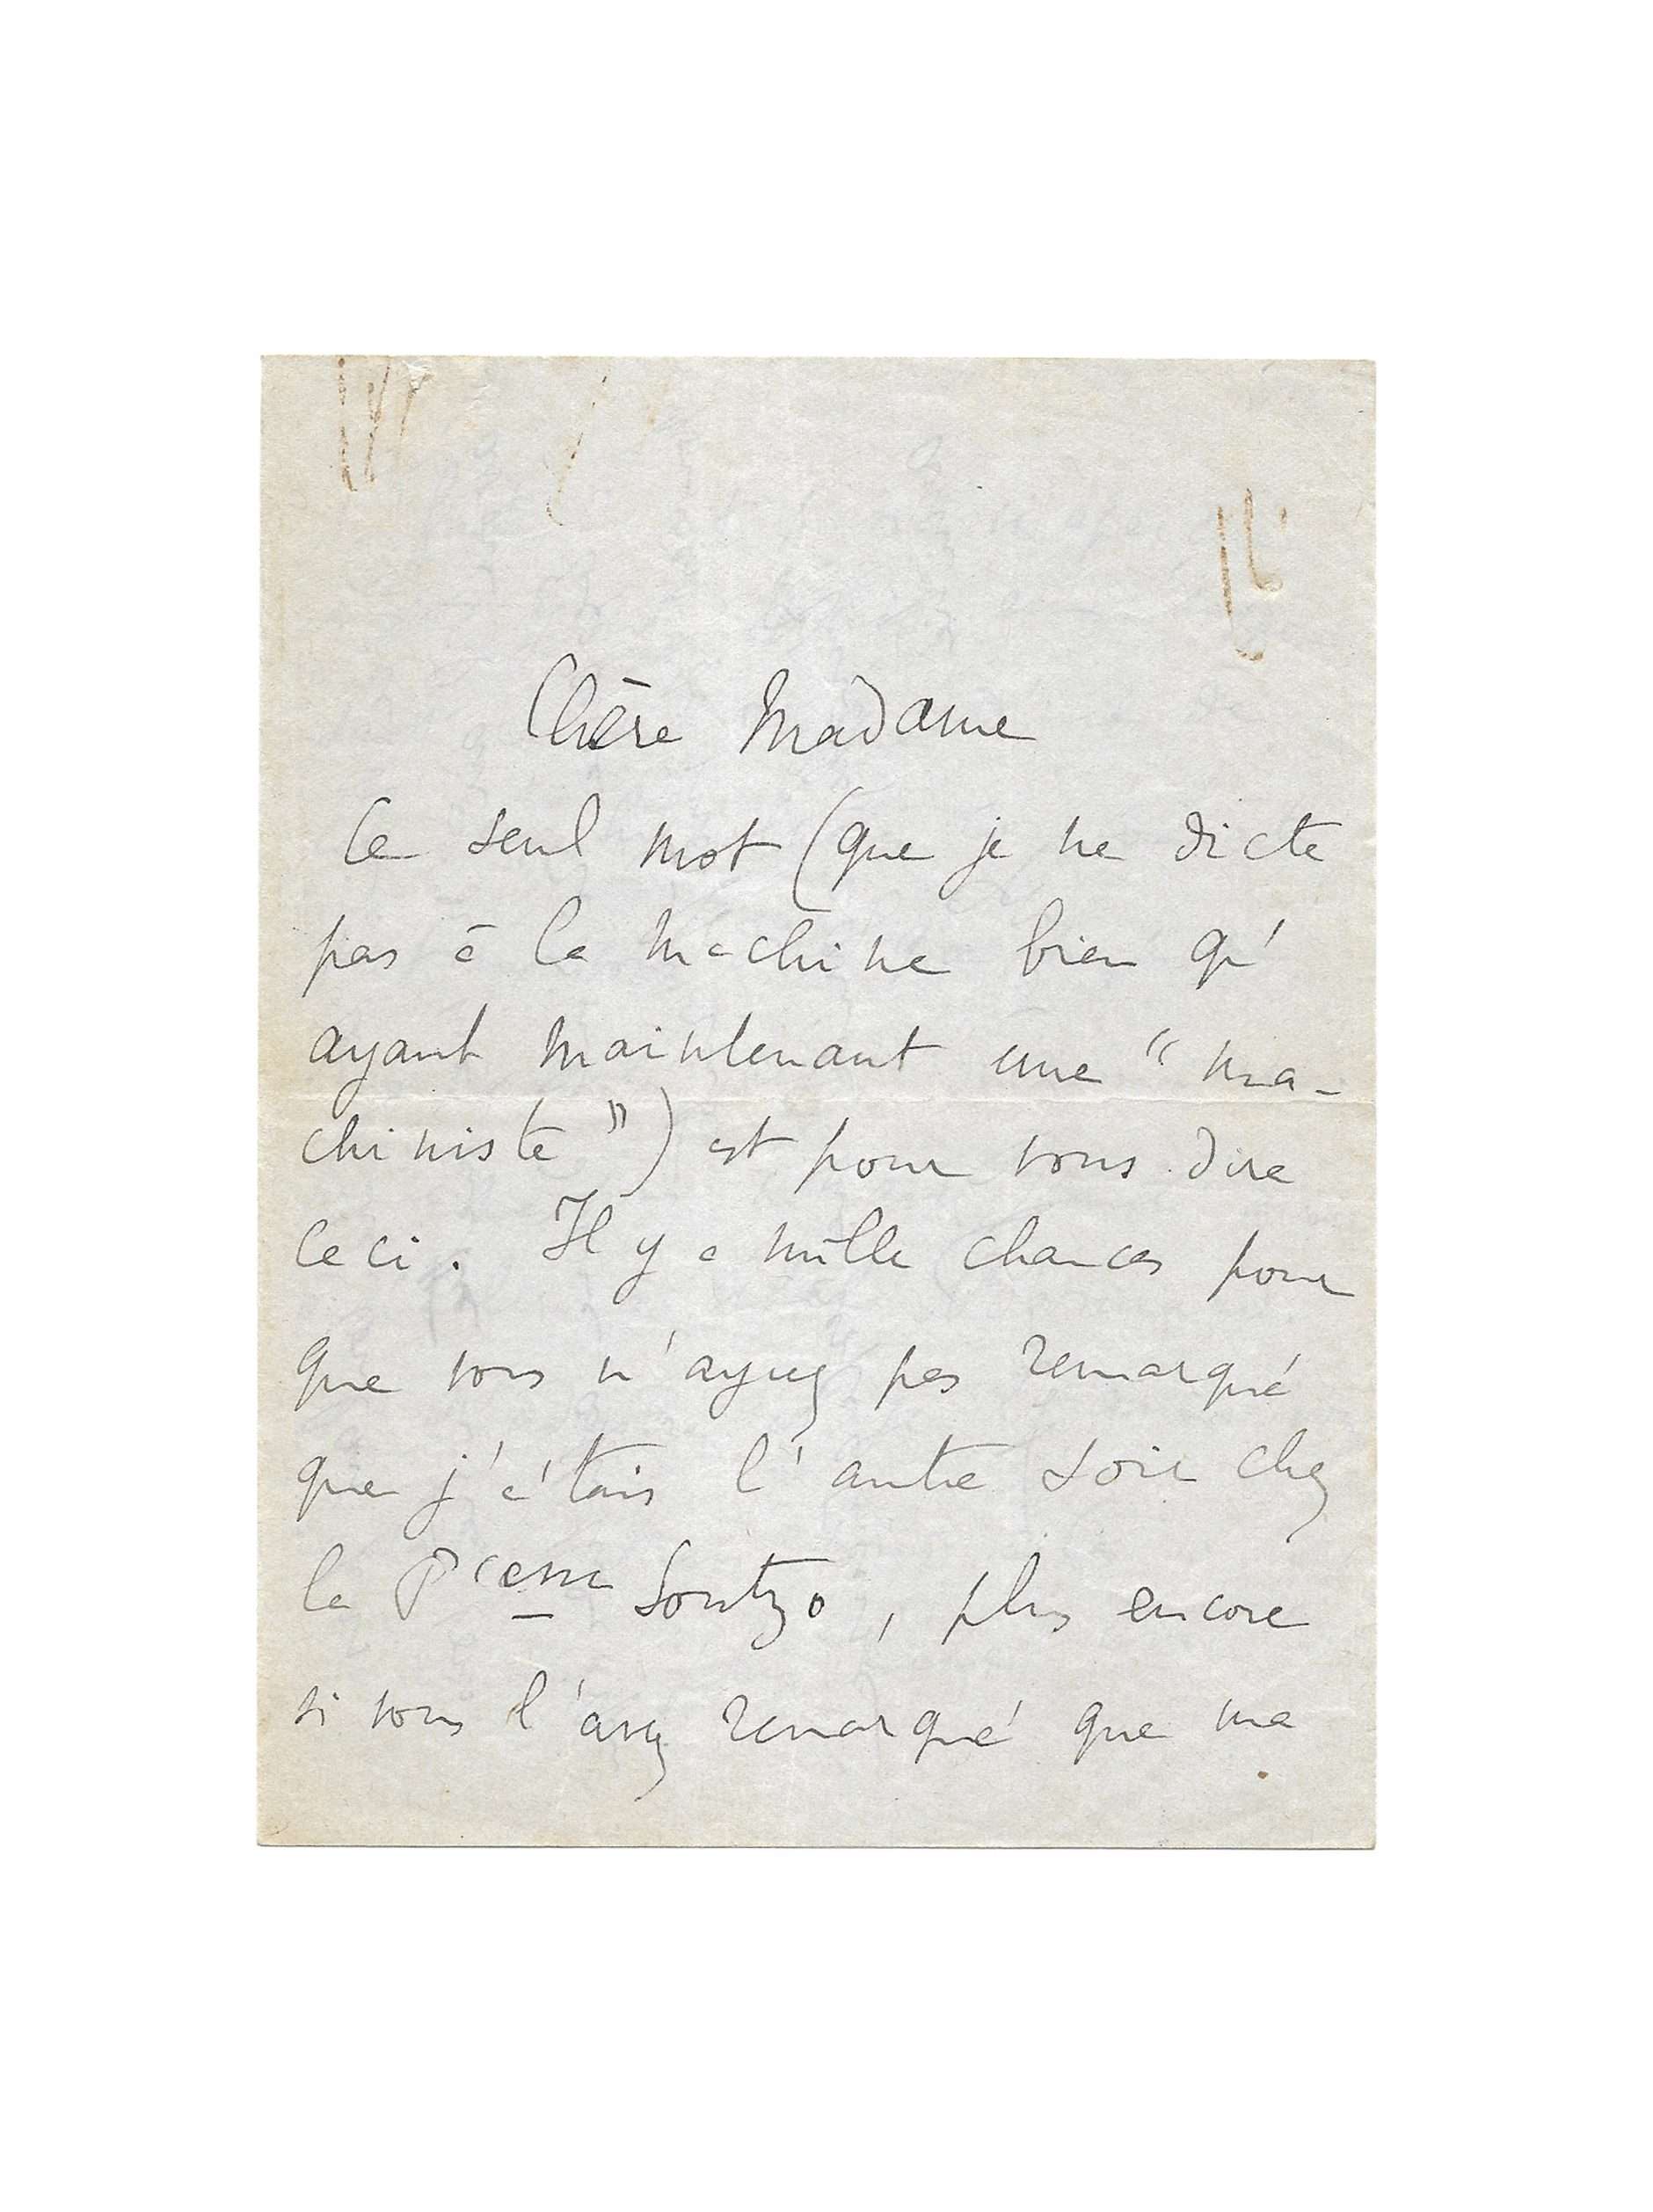 Chère Madame
Ce seul mot (que je ne dicte
pas à la machine bien qu'
ayant maintenant une " ma-
chiniste ") est pour vous dire
ceci. Il y a mille chances pour
que vous n'ayez pas remarqué
que j'étais l'autre soir chez
la Pcesse Soutzo, plus encore
si vous l'avez remarqué que ma